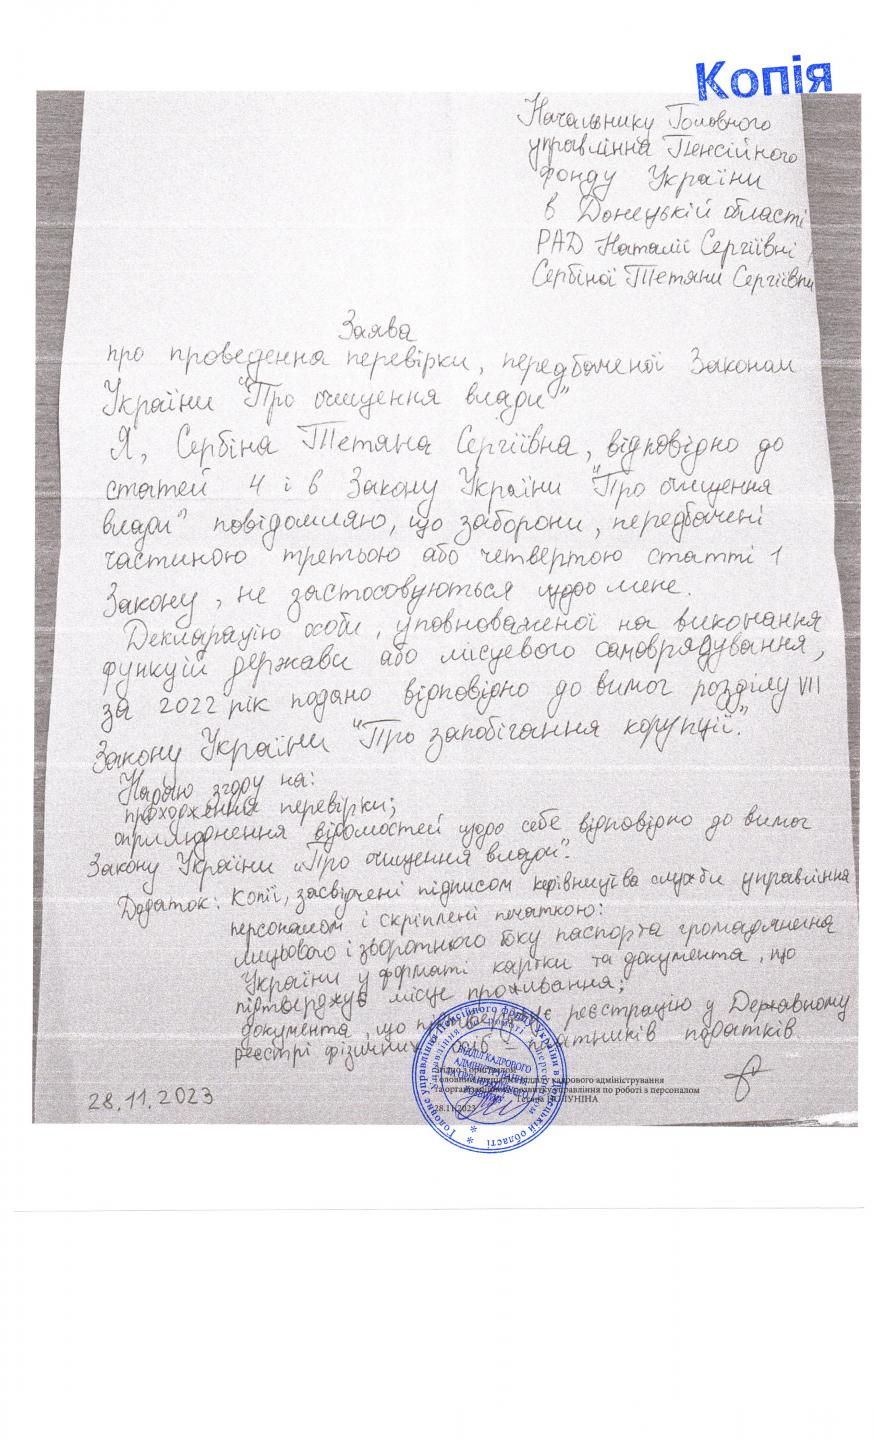 Копія
Начальнику Головного
управління Пенсійного
фонду України
в Донецькій області
РАД Наталії Сергіївні
Сербіної Тетяни Сергіївни
Заява
про проведення перевірки, передбаченої Законом
України "Про очищення влади"
Я, Сербіна Тетяна Сергіївна, відповідно до
статей 4 і 6 Закону України "Про очищення
влади" повідомляю, що заборони, передбачені
частиною третьою або четвертою статті 1
Закону, не застосовуються щодо мене.
Декларацію особи, уповноваженої на виконання
функцій держави або місцевого самоврядування,
за 2022 рік подано відповідно до вимог розділу VII
Закону України "Про запобігання корупції".
Надаю згоду на:
проходження перевірки;
оприлюднення відомостей щодо себе відповідно до вимог
Закону України „Про очищення влади".
Додаток: Копії, засвідчені підписом керівництва служби управління
персоналом і скріплені печаткою:
лицьового і зворотнього боку паспорта громадянина
України у форматі картки та документа, що
підтверджує місце проживання;
документа, що підтверджує реєстрацію у Державному
реєстрі фізичних осіб – платників податків
Згідно з оригіналом
Головний спеціаліст відділу кадрового адміністрування
та організаційного розвитку управління по роботі з персоналом
Тетяна
28.11.2023
28.11.2023
Головне управління Пенсійного фонду України в Донецькій області
управління по роботі з персоналом
ВІДДІЛ КАДРОВОГО
АДМІНІСТРУВАННЯ
ТА ОРГАНІЗАЦІЙНОГО
РОЗВИТКУ